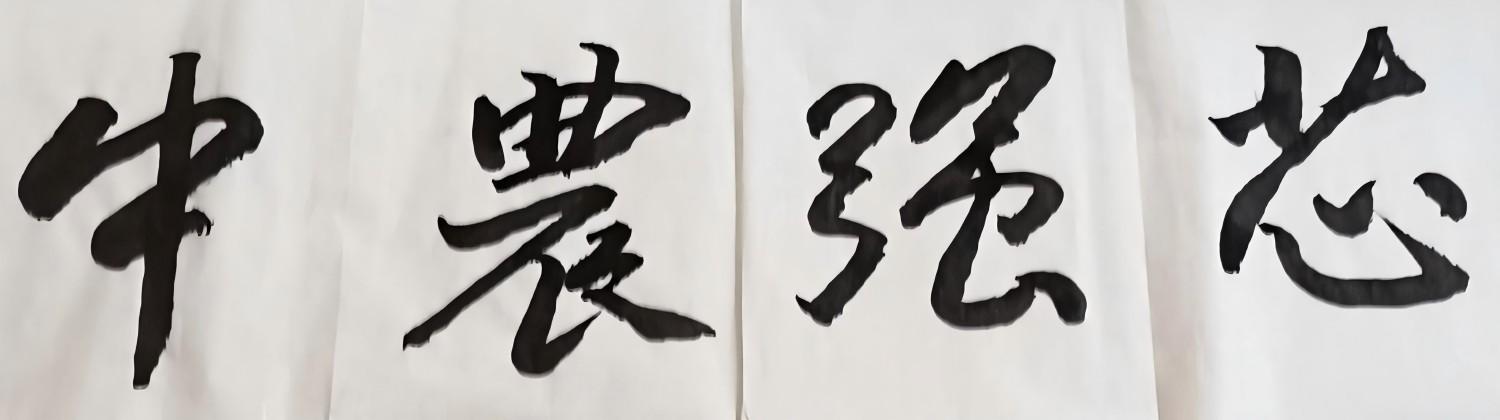 中農强芯